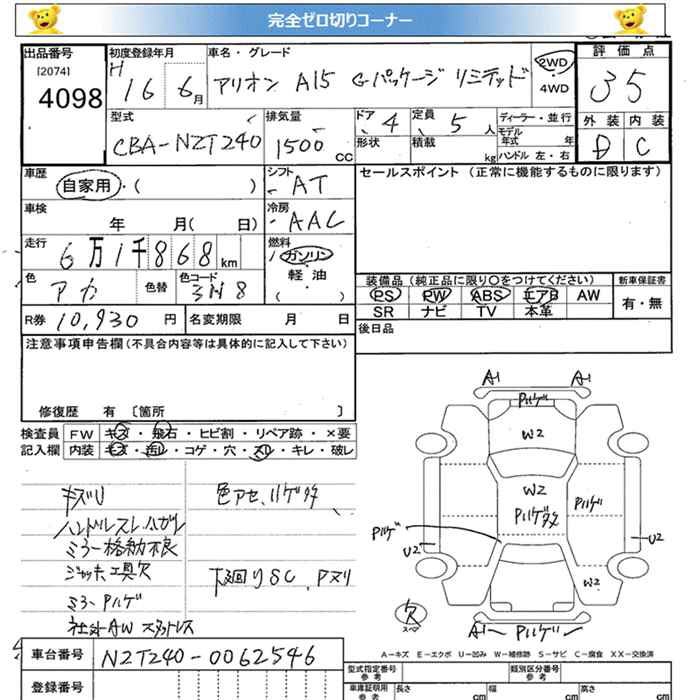 完全ゼロ切りコーナー
出品番号
[2074]
4098
初度登録年月
H 16 6月
車名・グレード
アリオン A15 Gパッケージ リミテッド
2WD
4WD
評価点
3.5
外装 内装
D C
型式
CBA-NZT240
排気量
1500 cc
ドア 4
定員 5 人
形状
積載 kg
ディーラー・並行
モデル年式 年
ハンドル 左・右
車歴
自家用・( )
シフト
AT
セールスポイント (正常に機能するものに限ります)
車検
年 月( 日)
冷房
AAC
走行
6万1千868 km
燃料
ガソリン
軽油
( )
色
アカ
色替
色コード
3N8
装備品(純正品に限り○をつけてください)
新車保証書
PS PW ABS エアB AW
SR ナビ TV 本革
有・無
R券 10,930 円
名変期限 月 日
後日品
注意事項申告欄(不具合内容等は具体的に記入して下さい)
修復歴 有 〔箇所 〕
検査員記入欄
FW キズ・飛石・ヒビ割・リペア跡・×要
内装 キズ・汚レ・コゲ・穴・スレ・キレ・破レ
キズU
色アセ、ハゲ多々
ハンドルスレハガレ
ミラー格納不良
ジャッキ、工具欠
下廻りSC、Pヌリ
ミラーPハゲ
社外AW スタッドレス
A1 A1
Pハゲ
W2
W2
Pハゲ多々
Pハゲ
Pハゲ
U2
U2
W2
欠
スペア
A1 Pハゲ
A-キズ E-エクボ U-凹み W-補修跡 S-サビ C-腐食 XX-交換済
車台番号 NZT240-0062546
登録番号
型式指定番号
参考
類別区分番号
参考
車庫証明用
参考
長さ cm
幅 cm
高さ cm